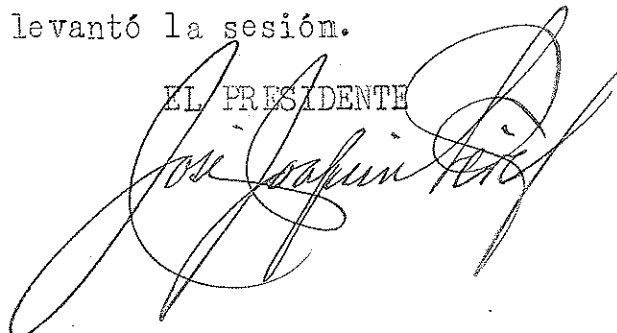 levantó la sesión.
EL PRESIDENTE
José Joaquin